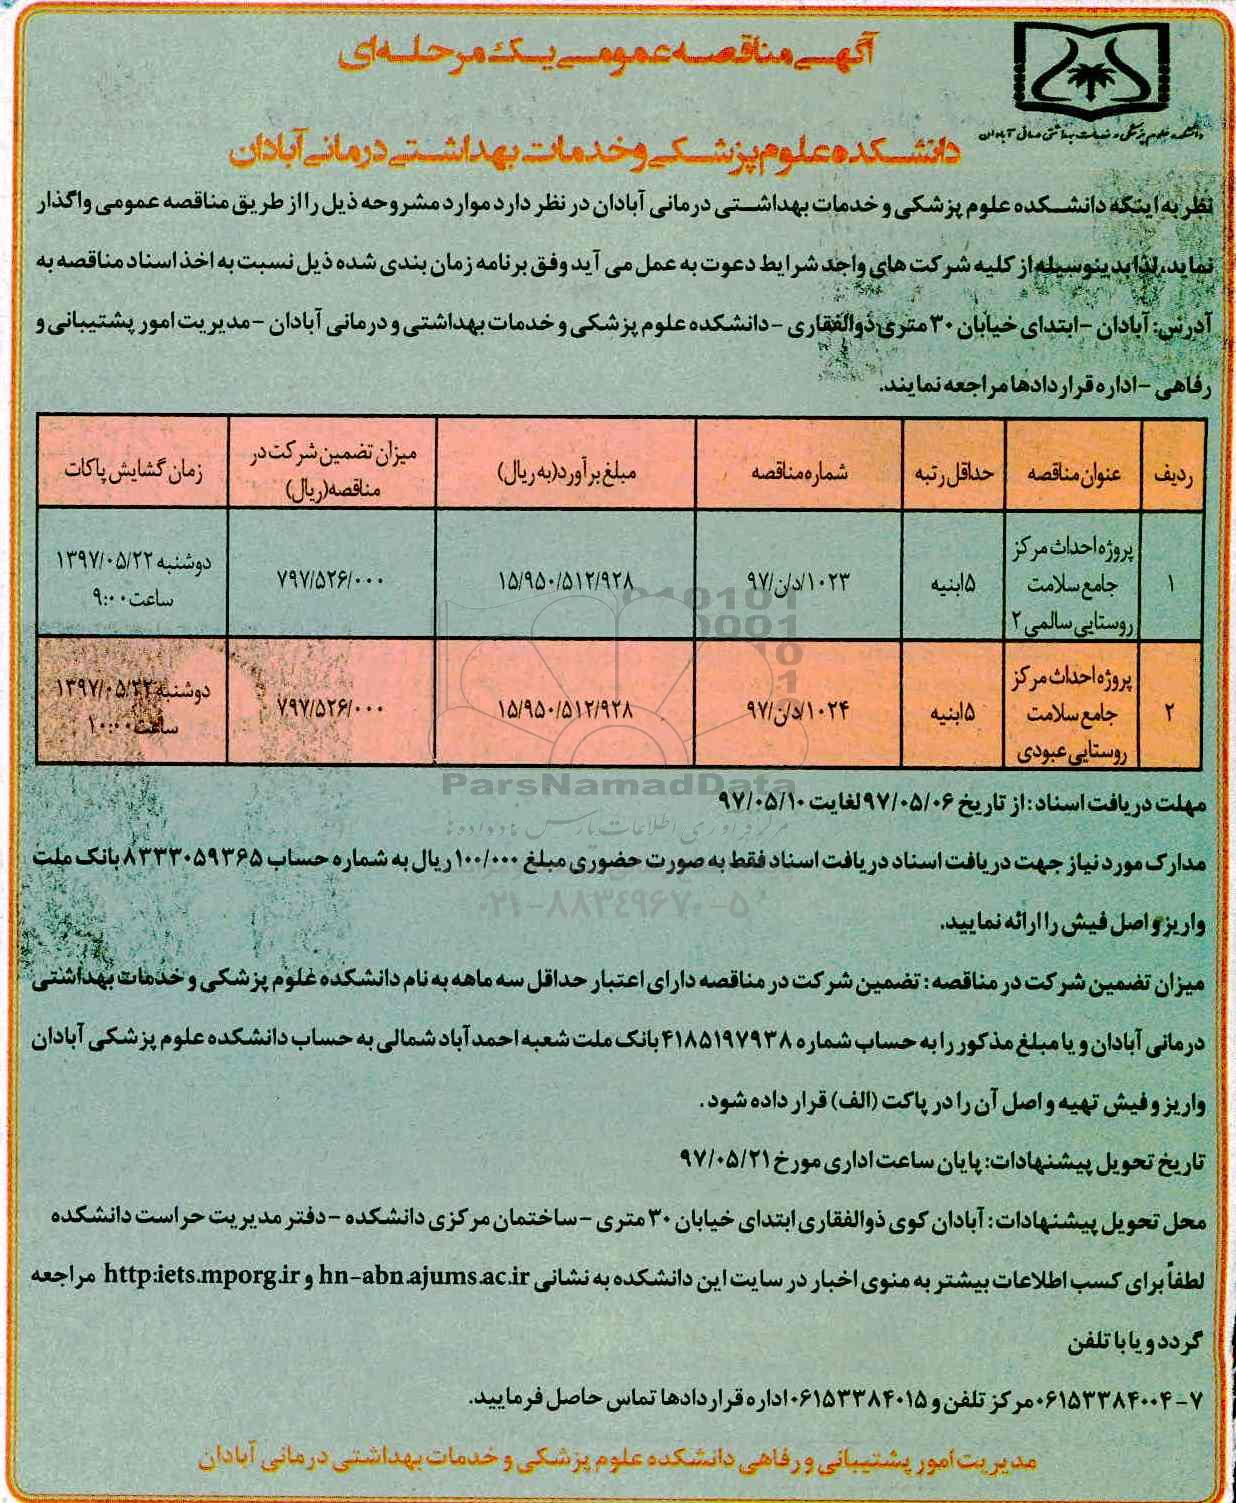 آگهی مناقصه عمومی یک مرحله ای
دانشکده علوم پزشکی و خدمات بهداشتی درمانی آبادان
دانشکده علوم پزشکی و خدمات بهداشتی درمانی آبادان
نظر به اینکه دانشکده علوم پزشکی و خدمات بهداشتی درمانی آبادان در نظر دارد موارد مشروحه ذیل را از طریق مناقصه عمومی واگذار
نماید، لذا بدینوسیله از کلیه شرکت های واجد شرایط دعوت به عمل می آید وفق برنامه زمان بندی شده ذیل نسبت به اخذ اسناد مناقصه به
آدرس: آبادان -ابتدای خیابان ۳۰ متری ذوالفقاری -دانشکده علوم پزشکی و خدمات بهداشتی و درمانی آبادان -مدیریت امور پشتیبانی و
رفاهی -اداره قراردادها مراجعه نمایند.
ردیف عنوان مناقصه حداقل رتبه شماره مناقصه مبلغ برآورد(به ریال) میزان تضمین شرکت در مناقصه(ریال) زمان گشایش پاکات
۱ پروژه احداث مرکز جامع سلامت روستایی سالمی ۲ ۵ابنیه ۱۰۲۳/د/ن/۹۷ ۱۵/۹۵۰/۵۱۲/۹۲۸ ۷۹۷/۵۲۶/۰۰۰ دوشنبه ۱۳۹۷/۰۵/۲۲ ساعت ۹:۰۰
۲ پروژه احداث مرکز جامع سلامت روستایی عبودی ۵ابنیه ۱۰۲۴/د/ن/۹۷ ۱۵/۹۵۰/۵۱۲/۹۲۸ ۷۹۷/۵۲۶/۰۰۰ دوشنبه ۱۳۹۷/۰۵/۲۲ ساعت ۱۰:۰۰
ParsNamadData
مرکز فرآوری اطلاعات پارس نماد داده ها
۰۲۱-۸۸۳۴۹۶۷۰-۵
مهلت دریافت اسناد: از تاریخ ۹۷/۰۵/۰۶ لغایت ۹۷/۰۵/۱۰
مدارک مورد نیاز جهت دریافت اسناد دریافت اسناد فقط به صورت حضوری مبلغ ۱۰۰/۰۰۰ ریال به شماره حساب ۸۳۳۳۰۵۹۳۶۵ بانک ملت
واریز و اصل فیش را ارائه نمایید.
میزان تضمین شرکت در مناقصه: تضمین شرکت در مناقصه دارای اعتبار حداقل سه ماهه به نام دانشکده علوم پزشکی و خدمات بهداشتی
درمانی آبادان و یا مبلغ مذکور را به حساب شماره ۴۱۸۵۱۹۷۹۳۸ بانک ملت شعبه احمدآباد شمالی به حساب دانشکده علوم پزشکی آبادان
واریز و فیش تهیه و اصل آن را در پاکت (الف) قرار داده شود.
تاریخ تحویل پیشنهادات: پایان ساعت اداری مورخ ۹۷/۰۵/۲۱
محل تحویل پیشنهادات: آبادان کوی ذوالفقاری ابتدای خیابان ۳۰ متری -ساختمان مرکزی دانشکده -دفتر مدیریت حراست دانشکده
لطفاً برای کسب اطلاعات بیشتر به منوی اخبار در سایت این دانشکده به نشانی hn-abn.ajums.ac.ir و http:iets.mporg.ir مراجعه
گردد و یا با تلفن
۰۶۱۵۳۳۸۴۰۰۴-۷ مرکز تلفن و ۰۶۱۵۳۳۸۴۰۱۵ اداره قراردادها تماس حاصل فرمایید.
مدیریت امور پشتیبانی و رفاهی دانشکده علوم پزشکی و خدمات بهداشتی درمانی آبادان